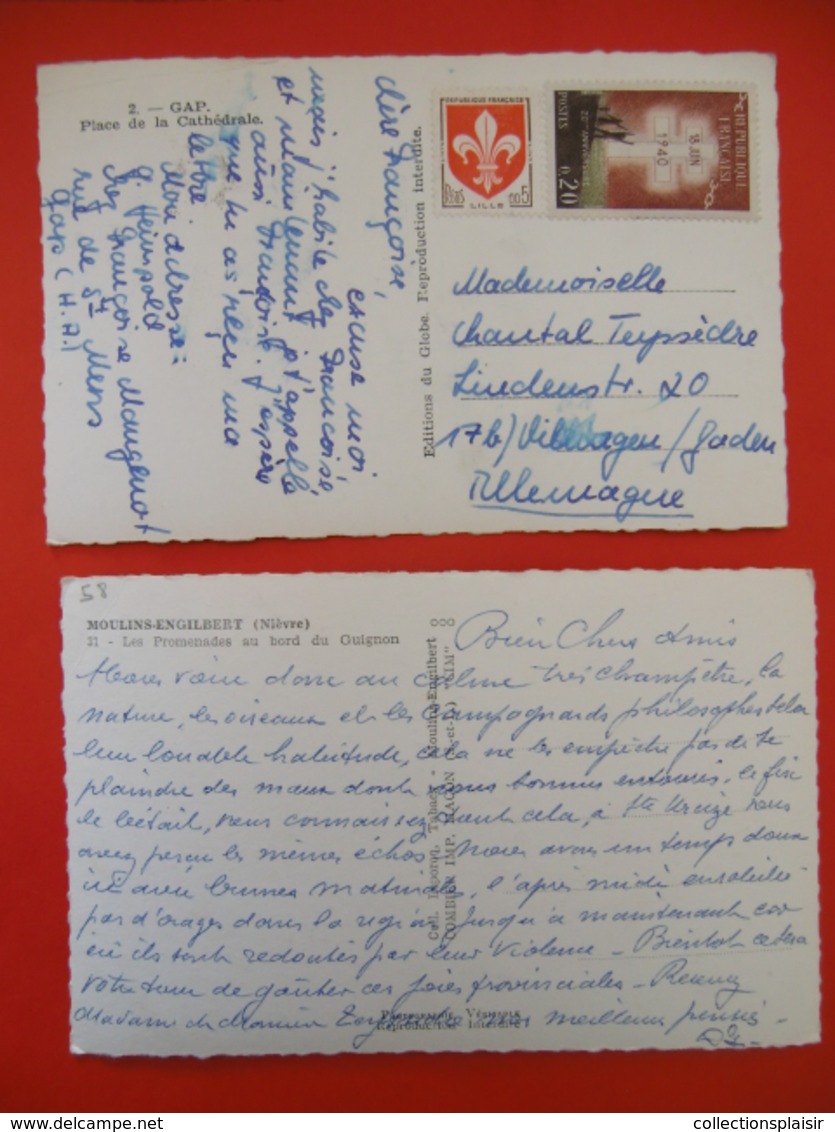 2. — GAP.
Place de la Cathédrale.
chère Françoise,
excuse moi
mais "habile chez Françoise
et maintenant j't'appelle
aussi Françoise. J'espère
que tu as reçu ma
lettre
Mon adresse:
G. Heinpold
chez Françoise Mangenot
rue de St Mens
Gap (H.A)
Editions du Globe. Reproduction interdite.
REPUBLIQUE FRANÇAISE
POSTES 0,05
LILLE
REPUBLIQUE
FRANÇAISE
18 JUIN
1940
POSTES 0,20
Mademoiselle
Chantal Teyssèdre
Lindenstr. 20
17b) Villingen/Baden
Allemagne
58
MOULINS-ENGILBERT (Nièvre)
31 - Les Promenades au bord du Guignon
Coll. Tabacs - Moulins-Engilbert
COMBIER IMP. MACON (S.-et-L.) "CIM"
Photographie Véritable
Reproduction Interdite
Bien Chers Amis
Nous voici donc au calme très champêtre, la
nature, les oiseaux et les campagnards philosophes de la
leur louable habitude, cela ne les empêche pas de se
plaindre des maux dont nous sommes entourés, le fisc
le bétail, vous connaissez tout cela, à
avez perçu les mêmes échos. Nous avons un temps doux
ici avec brumes matinales, l'après midi ensoleillé
pas d'orages dans la région jusqu'à maintenant car
ici ils sont redoutés par leur violence - Bientôt ce sera
votre tour de goûter ces joies provinciales - Recevez
Madame et Monsieur nos meilleures pensées -